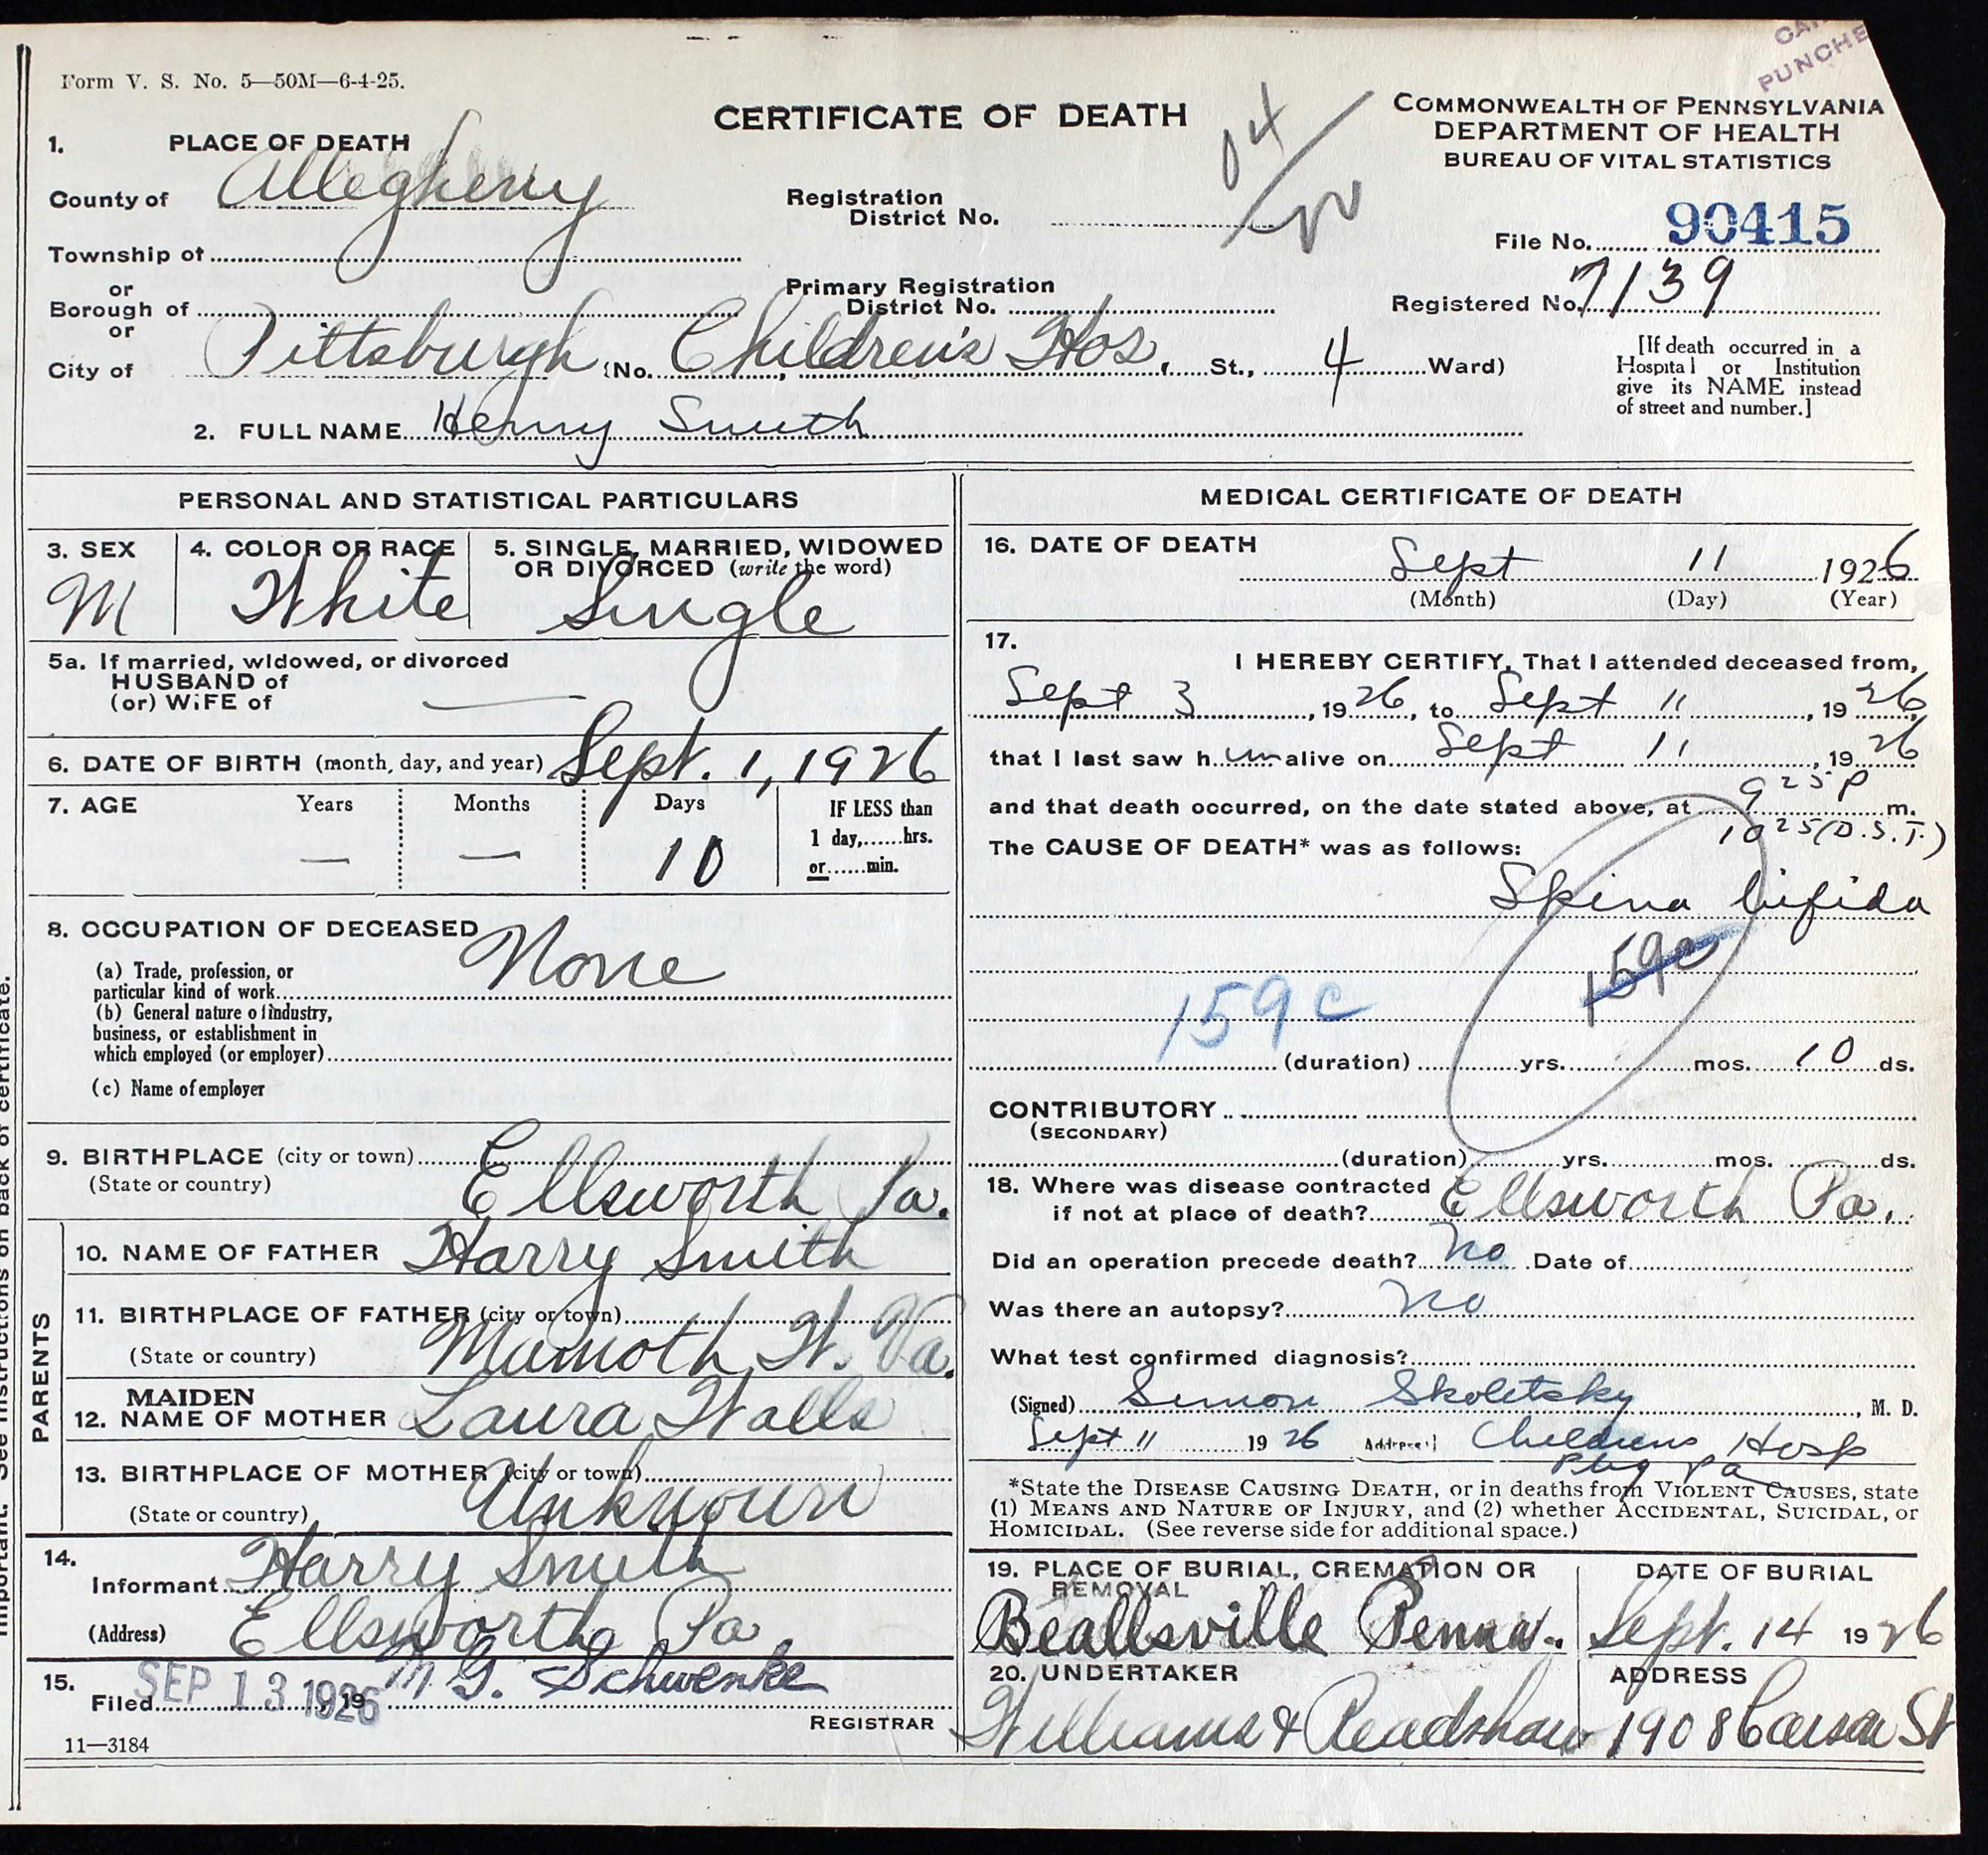 Form V. S. No. 5—50M—6-4-25.
CERTIFICATE OF DEATH
04
COMMONWEALTH OF PENNSYLVANIA
DEPARTMENT OF HEALTH
BUREAU OF VITAL STATISTICS
1. PLACE OF DEATH
County of Allegheny
Registration District No.
File No. 90415
Township of
or
Borough of
Primary Registration District No.
Registered No. 7139
or
City of Pittsburgh (No. Children's Hos, St., 4 Ward)
[If death occurred in a Hospital or Institution give its NAME instead of street and number.]
2. FULL NAME Henry Smith
PERSONAL AND STATISTICAL PARTICULARS
3. SEX M
4. COLOR OR RACE White
5. SINGLE, MARRIED, WIDOWED OR DIVORCED (write the word) Single
5a. If married, widowed, or divorced
HUSBAND of
(or) WIFE of —
6. DATE OF BIRTH (month, day, and year) Sept. 1, 1926
7. AGE Years — Months — Days 10 IF LESS than 1 day,......hrs. or......min.
8. OCCUPATION OF DECEASED None
(a) Trade, profession, or
particular kind of work
(b) General nature of industry,
business, or establishment in
which employed (or employer)
(c) Name of employer
9. BIRTHPLACE (city or town)
(State or country) Ellsworth Pa.
PARENTS
10. NAME OF FATHER Harry Smith
11. BIRTHPLACE OF FATHER (city or town)
(State or country) Mamoth W. Va.
12. MAIDEN NAME OF MOTHER Laura Walls
13. BIRTHPLACE OF MOTHER (city or town)
(State or country) Unknown
14. Informant Harry Smith
(Address) Ellsworth Pa
15. Filed SEP 13 1926 19 M G. Schwenke
REGISTRAR
11—3184
MEDICAL CERTIFICATE OF DEATH
16. DATE OF DEATH Sept 11 1926
(Month) (Day) (Year)
17. I HEREBY CERTIFY, That I attended deceased from,
Sept 3, 1926, to Sept 11, 1926,
that I last saw him alive on Sept 11, 1926
and that death occurred, on the date stated above, at 9 25 P m.
10 25 (D.S.T.)
The CAUSE OF DEATH* was as follows:
Spina bifida
159c
(duration) yrs. mos. 10 ds.
CONTRIBUTORY
(SECONDARY)
(duration) yrs. mos. ds.
18. Where was disease contracted
if not at place of death? Ellsworth Pa.
Did an operation precede death? No Date of
Was there an autopsy? No
What test confirmed diagnosis?
(Signed) Simon Skoletsky, M. D.
Sept 11 1926 Address] Childrens Hosp
Pbg Pa
*State the DISEASE CAUSING DEATH, or in deaths from VIOLENT CAUSES, state
(1) MEANS AND NATURE OF INJURY, and (2) whether ACCIDENTAL, SUICIDAL, or
HOMICIDAL. (See reverse side for additional space.)
19. PLACE OF BURIAL, CREMATION OR REMOVAL
Beallsville Penna.
DATE OF BURIAL
Sept. 14 1926
20. UNDERTAKER
Williams & Readshaw
ADDRESS
1908 Carson St
important. See instructions on back of certificate.